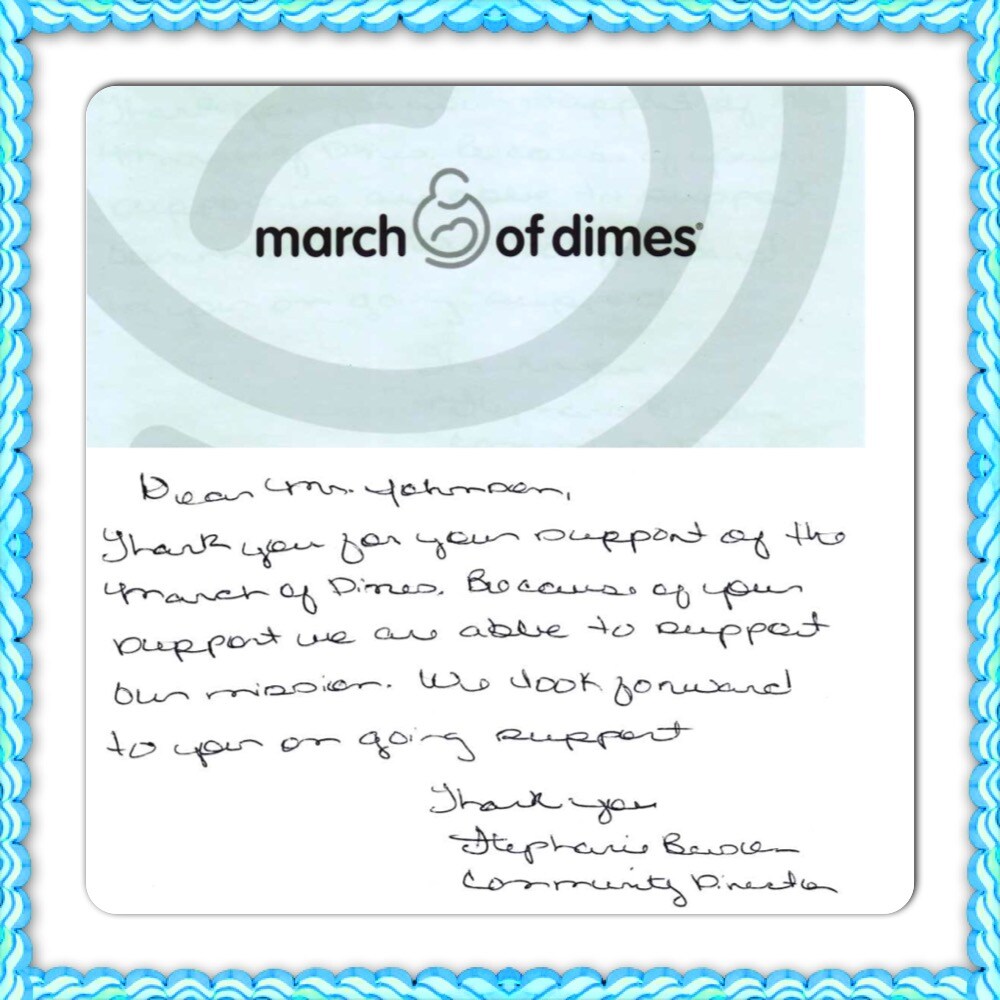 march of dimes®
Dear Mr. Johnson,
Thank you for your support of the
March of Dimes. Because of your
support we are able to support
our mission. We look forward
to your on going support
Thank you
Stephanie
Community Director